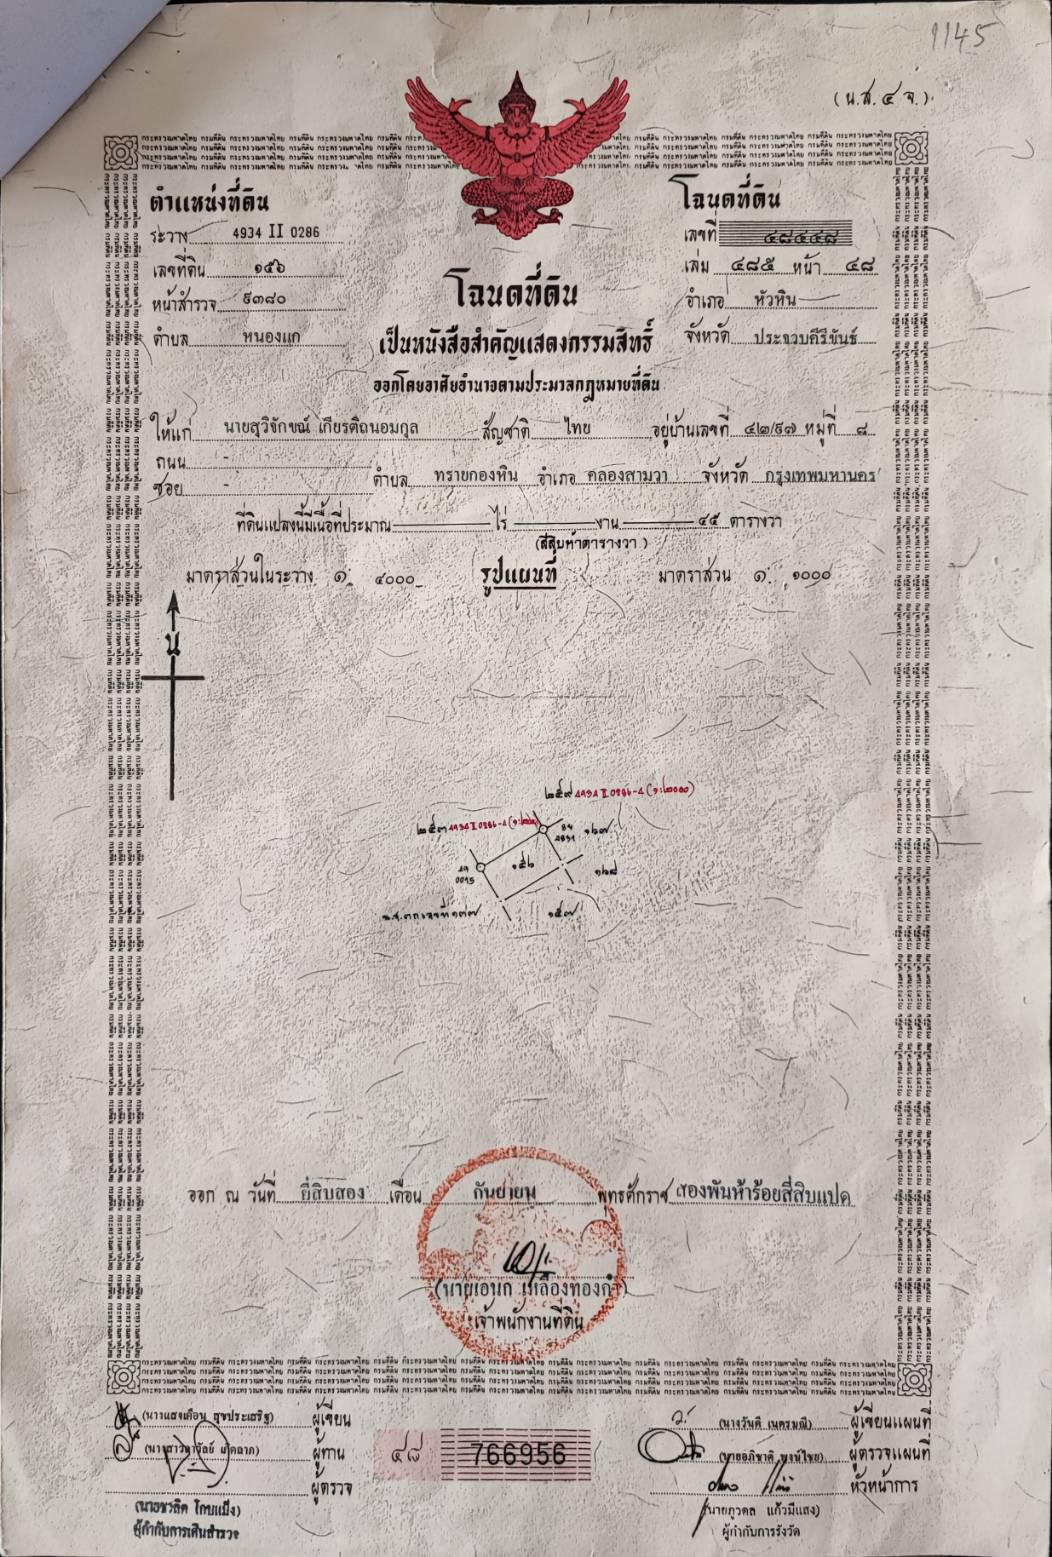 1145
(น.ส. ๔ จ.)
ตำแหน่งที่ดิน
ระวาง 4934 II 0286
เลขที่ดิน ๑๕๖
หน้าสำรวจ ๙๓๘๐
ตำบล หนองแก
โฉนดที่ดิน
เลขที่ ๔๘๔๔๘
เล่ม ๔๘๕ หน้า ๔๘
อำเภอ หัวหิน
จังหวัด ประจวบคีรีขันธ์
โฉนดที่ดิน
เป็นหนังสือสำคัญแสดงกรรมสิทธิ์
ออกโดยอาศัยอำนาจตามประมวลกฎหมายที่ดิน
ให้แก่ นายสุวิจักขณ์ เกียรติถนอมกุล สัญชาติ ไทย อยู่บ้านเลขที่ ๔๒/๙๗ หมู่ที่ ๘
ถนน -
ซอย - ตำบล ทรายกองดิน อำเภอ คลองสามวา จังหวัด กรุงเทพมหานคร
ที่ดินแปลงนี้มีเนื้อที่ประมาณ ไร่ งาน ๔๕ ตารางวา
(สี่สิบห้าตารางวา)
มาตราส่วนในระวาง ๑: ๔๐๐๐ รูปแผนที่ มาตราส่วน ๑: ๑๐๐๐
น
๒๕๙ 4934 II 0286-4 (๑:๒๐๐๐)
๒๕๓ 4934 II 0286-4
๑๖๗
๑๕๖
๑๖๘
น.ส.๓ก เลขที่ ๑๗๗
๑๕๗
ออก ณ วันที่ ยี่สิบสอง เดือน กันยายน พุทธศักราช สองพันห้าร้อยสี่สิบแปด
(นายเอนก เหลืองทองคำ)
เจ้าพนักงานที่ดิน
(นางแสงเดือน สุขประเสริฐ) ผู้เขียน
ผู้ทาน
ผู้ตรวจ
(นายชวลิต โกบแม็ง)
ผู้กำกับการเดินสำรวจ
๔๘ 766956
(นางวันดี เนตรมณี) ผู้เขียนแผนที่
(นายอภิชาติ พงษ์ไชย) ผู้ตรวจแผนที่
หัวหน้าการ
(นายภูวดล แก้วมีแสง)
ผู้กำกับการรังวัด